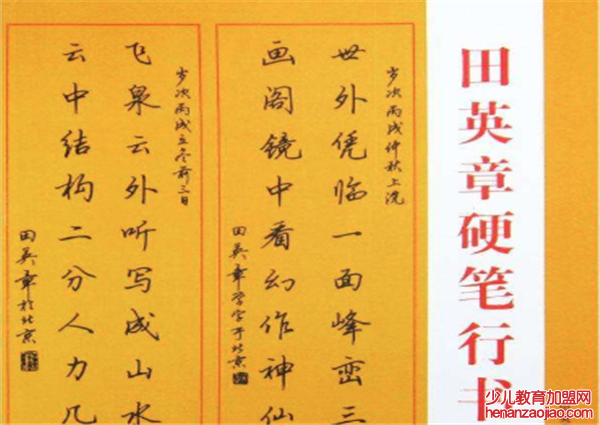 田英章硬笔行书
岁次丙戌仲秋上浣
世外凭临一面峰峦三
画阁镜中看幻作神仙
田英章習字于北京
岁次丙戌立冬前三日
飞泉云外听写成山水
云中结构二分人力几
田英章於北京
少儿教育加盟网
henanzaojiao.com